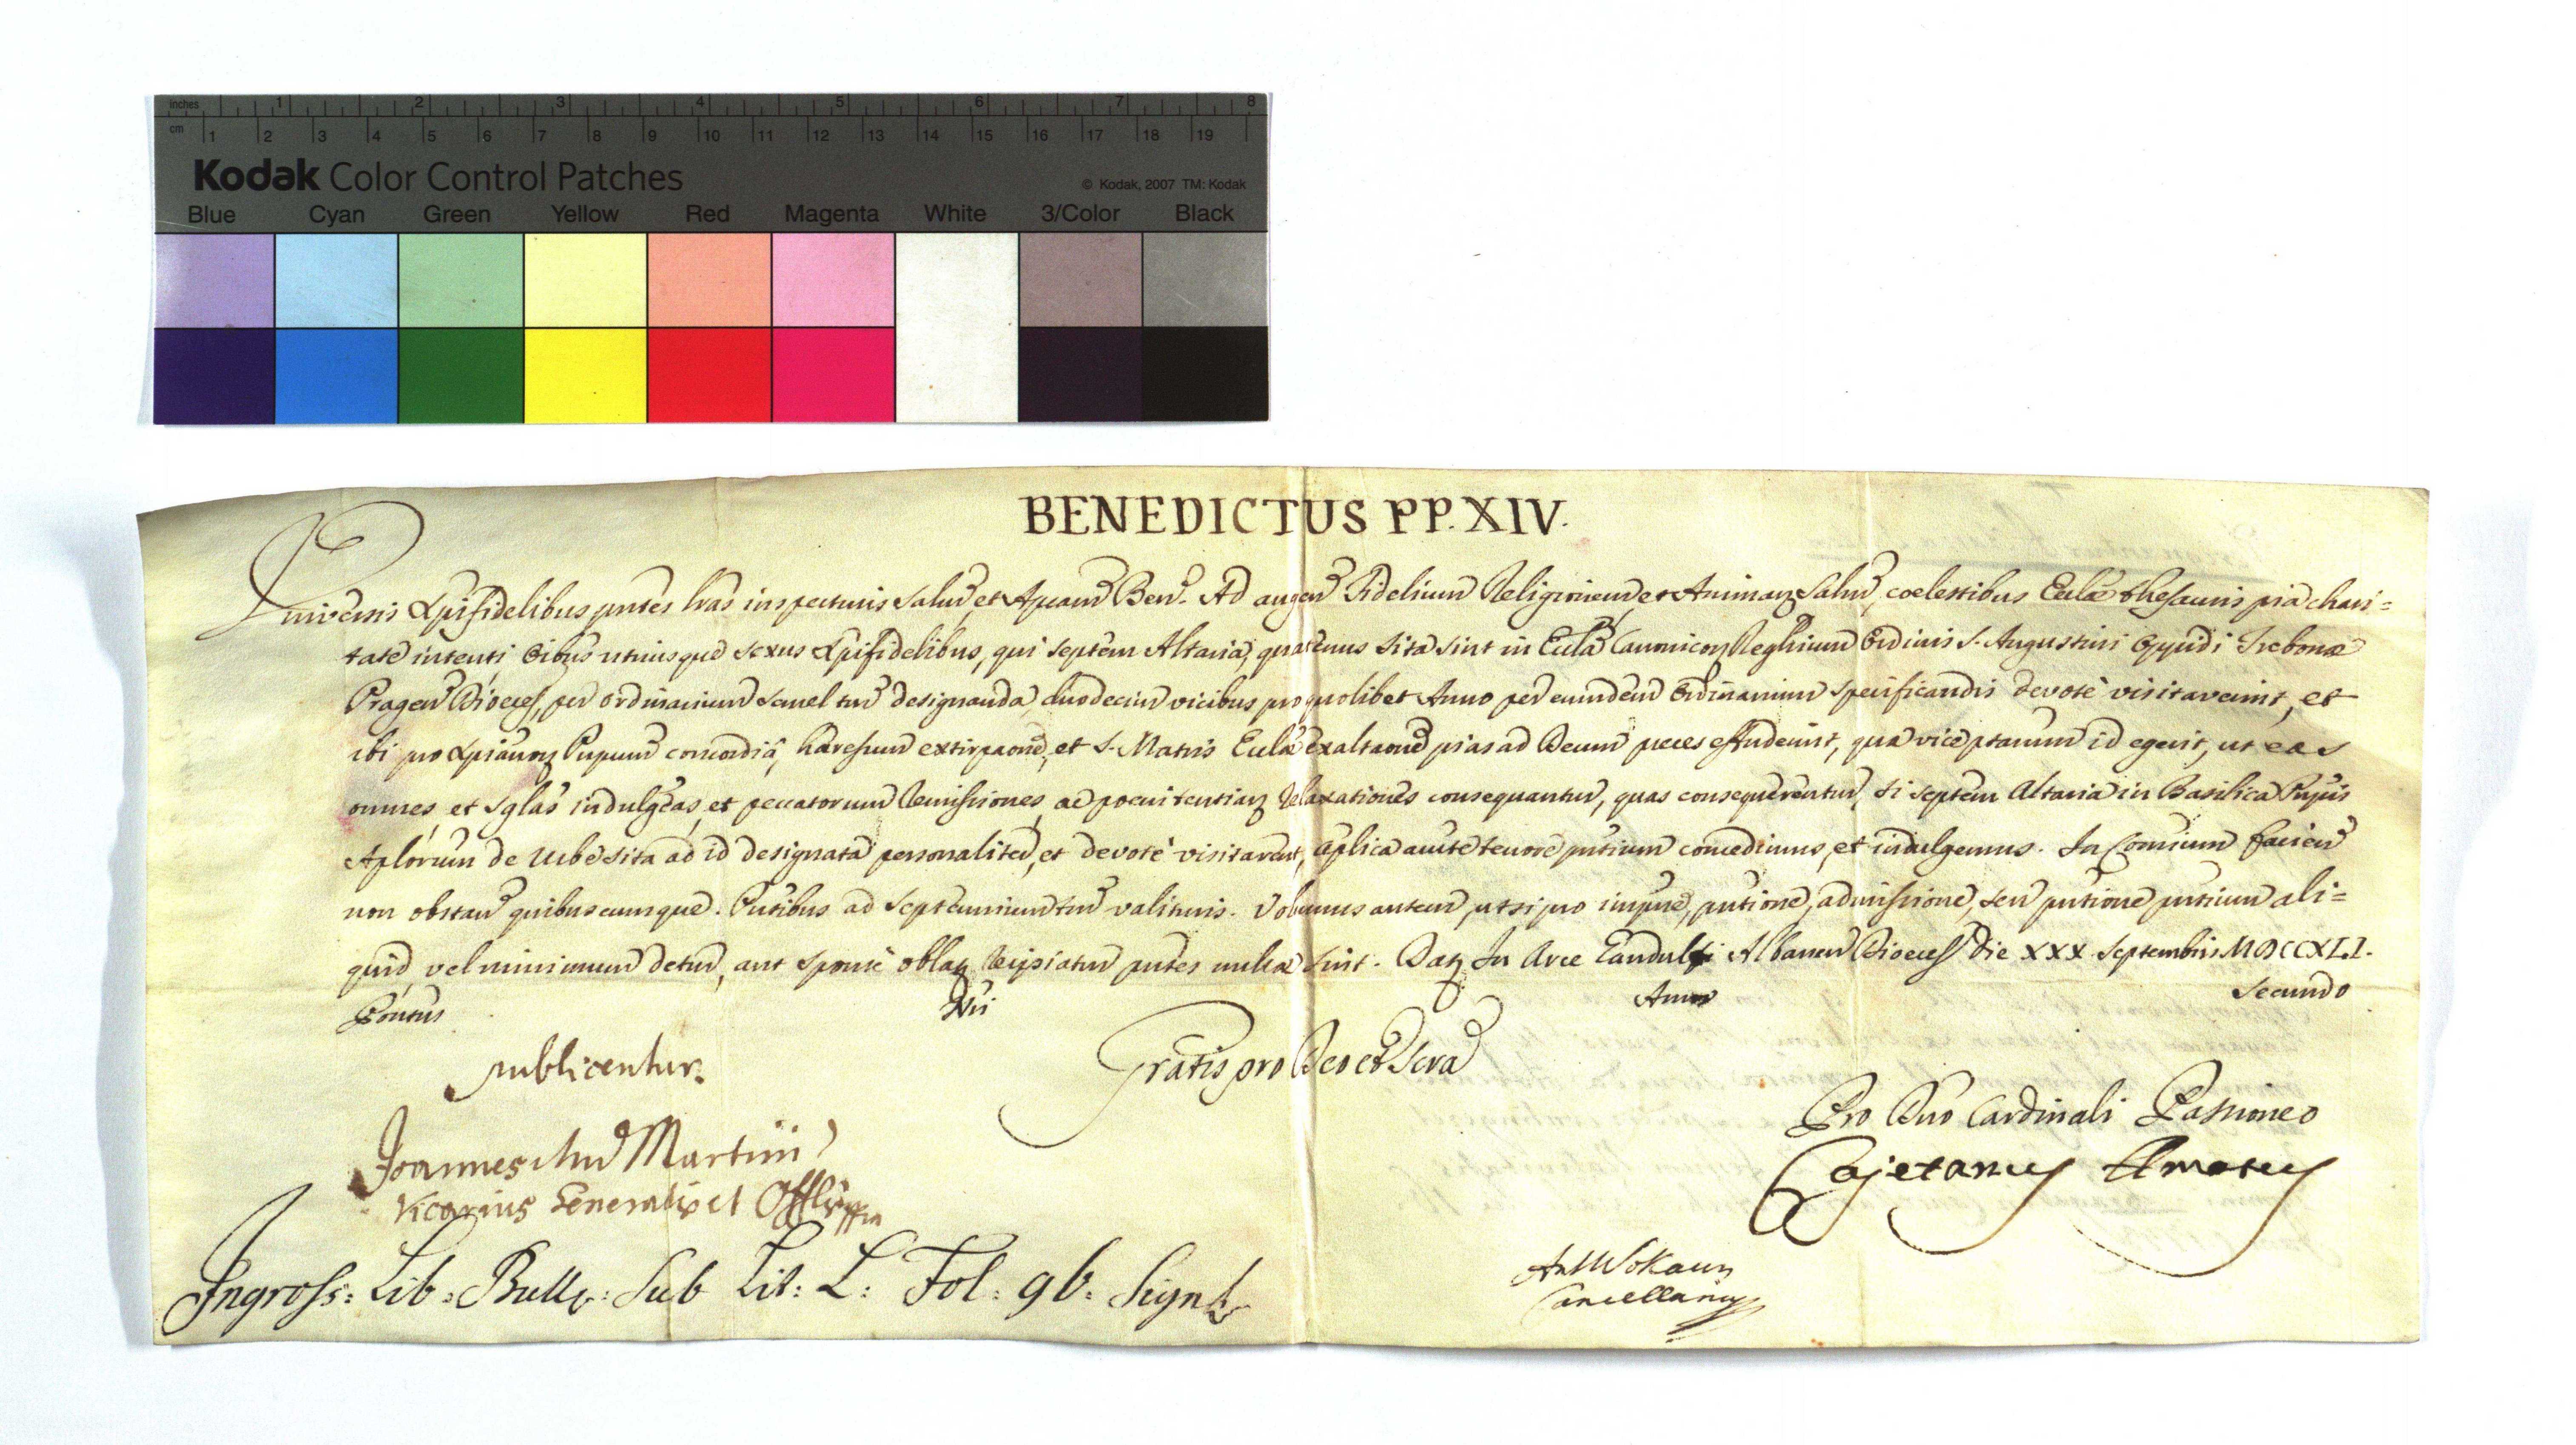 inches 1 2 3 4 5 6 7 8
cm 1 2 3 4 5 6 7 8 9 10 11 12 13 14 15 16 17 18 19
Kodak Color Control Patches © Kodak, 2007 TM: Kodak
Blue Cyan Green Yellow Red Magenta White 3/Color Black
BENEDICTUS PP. XIV.
Universis Xpifidelibus pntes lras inspecturis Salud, et Aplicam Ben. Ad augen Fidelium Religionem, et Animaz Salud, coelestibus Eccla thesauris pia chari=
tate intenti Oibus utriusque sexus Xpifidelibus, qui septem Altaria, quatenus sita sint in Eccla Canonicoz Reglrium Ordinis S. Augustini Oppidi Trebonæ
Pragen Dioces, per ordinarium semel tm designanda, duodecim vicibus pro quolibet Anno per eumdem Ordinarium specificandis devote visitaverint, et
ibi pro Xpianoz Pnpum concordia, hæresum extirpaone, et S. Matris Ecclæ exaltaone pias ad Deum preces effuderint, qua vice ptarum id egerit, ut eas
omnes et sglas indulgeas, et peccatorum remissiones, ac poenitentiaz relaxationes consequantur, quas consequerentur, si septem Altaria in Basilica Pnpis
Aplorum de Urbe sita ad id designata personaliter, et devote visitarent, aplica aucte tenore pntium concedimus, et indulgemus. In Contrium facien
non obstan quibuscumque. Pntibus ad Septennium tm valituris. Volumus autem, ut si pro impne, pntione, admissione, seu pntione pntium ali=
quid, vel minimum detur, aut sponte oblaz recipiatur pntes nullæ sint. Daz In Arce Gandulfi Albanen Dioces Die XXX Septembris MDCCXLI.
Pontus Nri Anno Secundo
publicentur.
Gratis pro Deo et Scra
Joannes And Martini
Vicarius Generalis et Offlis
Pro Dno Cardinali Passioneo
Cajetanus Amatus
Ingross: Lib: Bull: Sub Lit: L: Fol: 9b: Sign
Ant Wokaun
Cancellarius